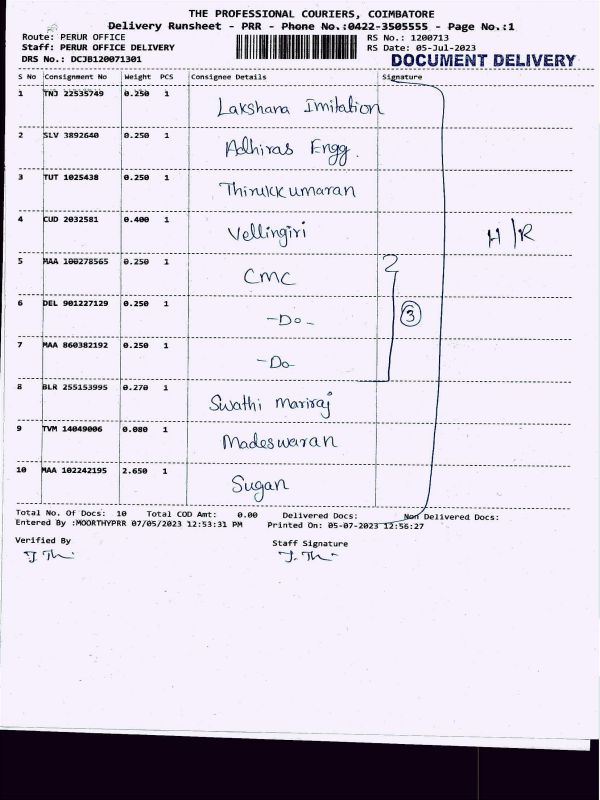 THE PROFESSIONAL COURIERS, COIMBATORE
Delivery Runsheet - PRR - Phone No.:0422-3505555 - Page No.:1
Route: PERUR OFFICE RS No.: 1200713
Staff: PERUR OFFICE DELIVERY RS Date: 05-Jul-2023
DRS No.: DCJB120071301 DOCUMENT DELIVERY
S No Consignment No Weight PCS Consignee Details Signature
1 TNJ 22535749 0.250 1 Lakshana Imitation
2 SLV 3892640 0.250 1 Adhiras Engg.
3 TUT 1025438 0.250 1 Thirukkumaran
4 CUD 2032581 0.400 1 Vellingiri H/R
5 MAA 100278565 0.250 1 CMC
6 DEL 901227129 0.250 1 -Do- 3
7 MAA 860382192 0.250 1 -Do
8 BLR 255153995 0.270 1 Swathi Mariraj
9 TVM 14049006 0.080 1 Madeswaran
10 MAA 102242195 2.650 1 Sugan
Total No. Of Docs: 10 Total COD Amt: 0.00 Delivered Docs: Non Delivered Docs:
Entered By :MOORTHYPRR 07/05/2023 12:53:31 PM Printed On: 05-07-2023 12:56:27
Verified By Staff Signature